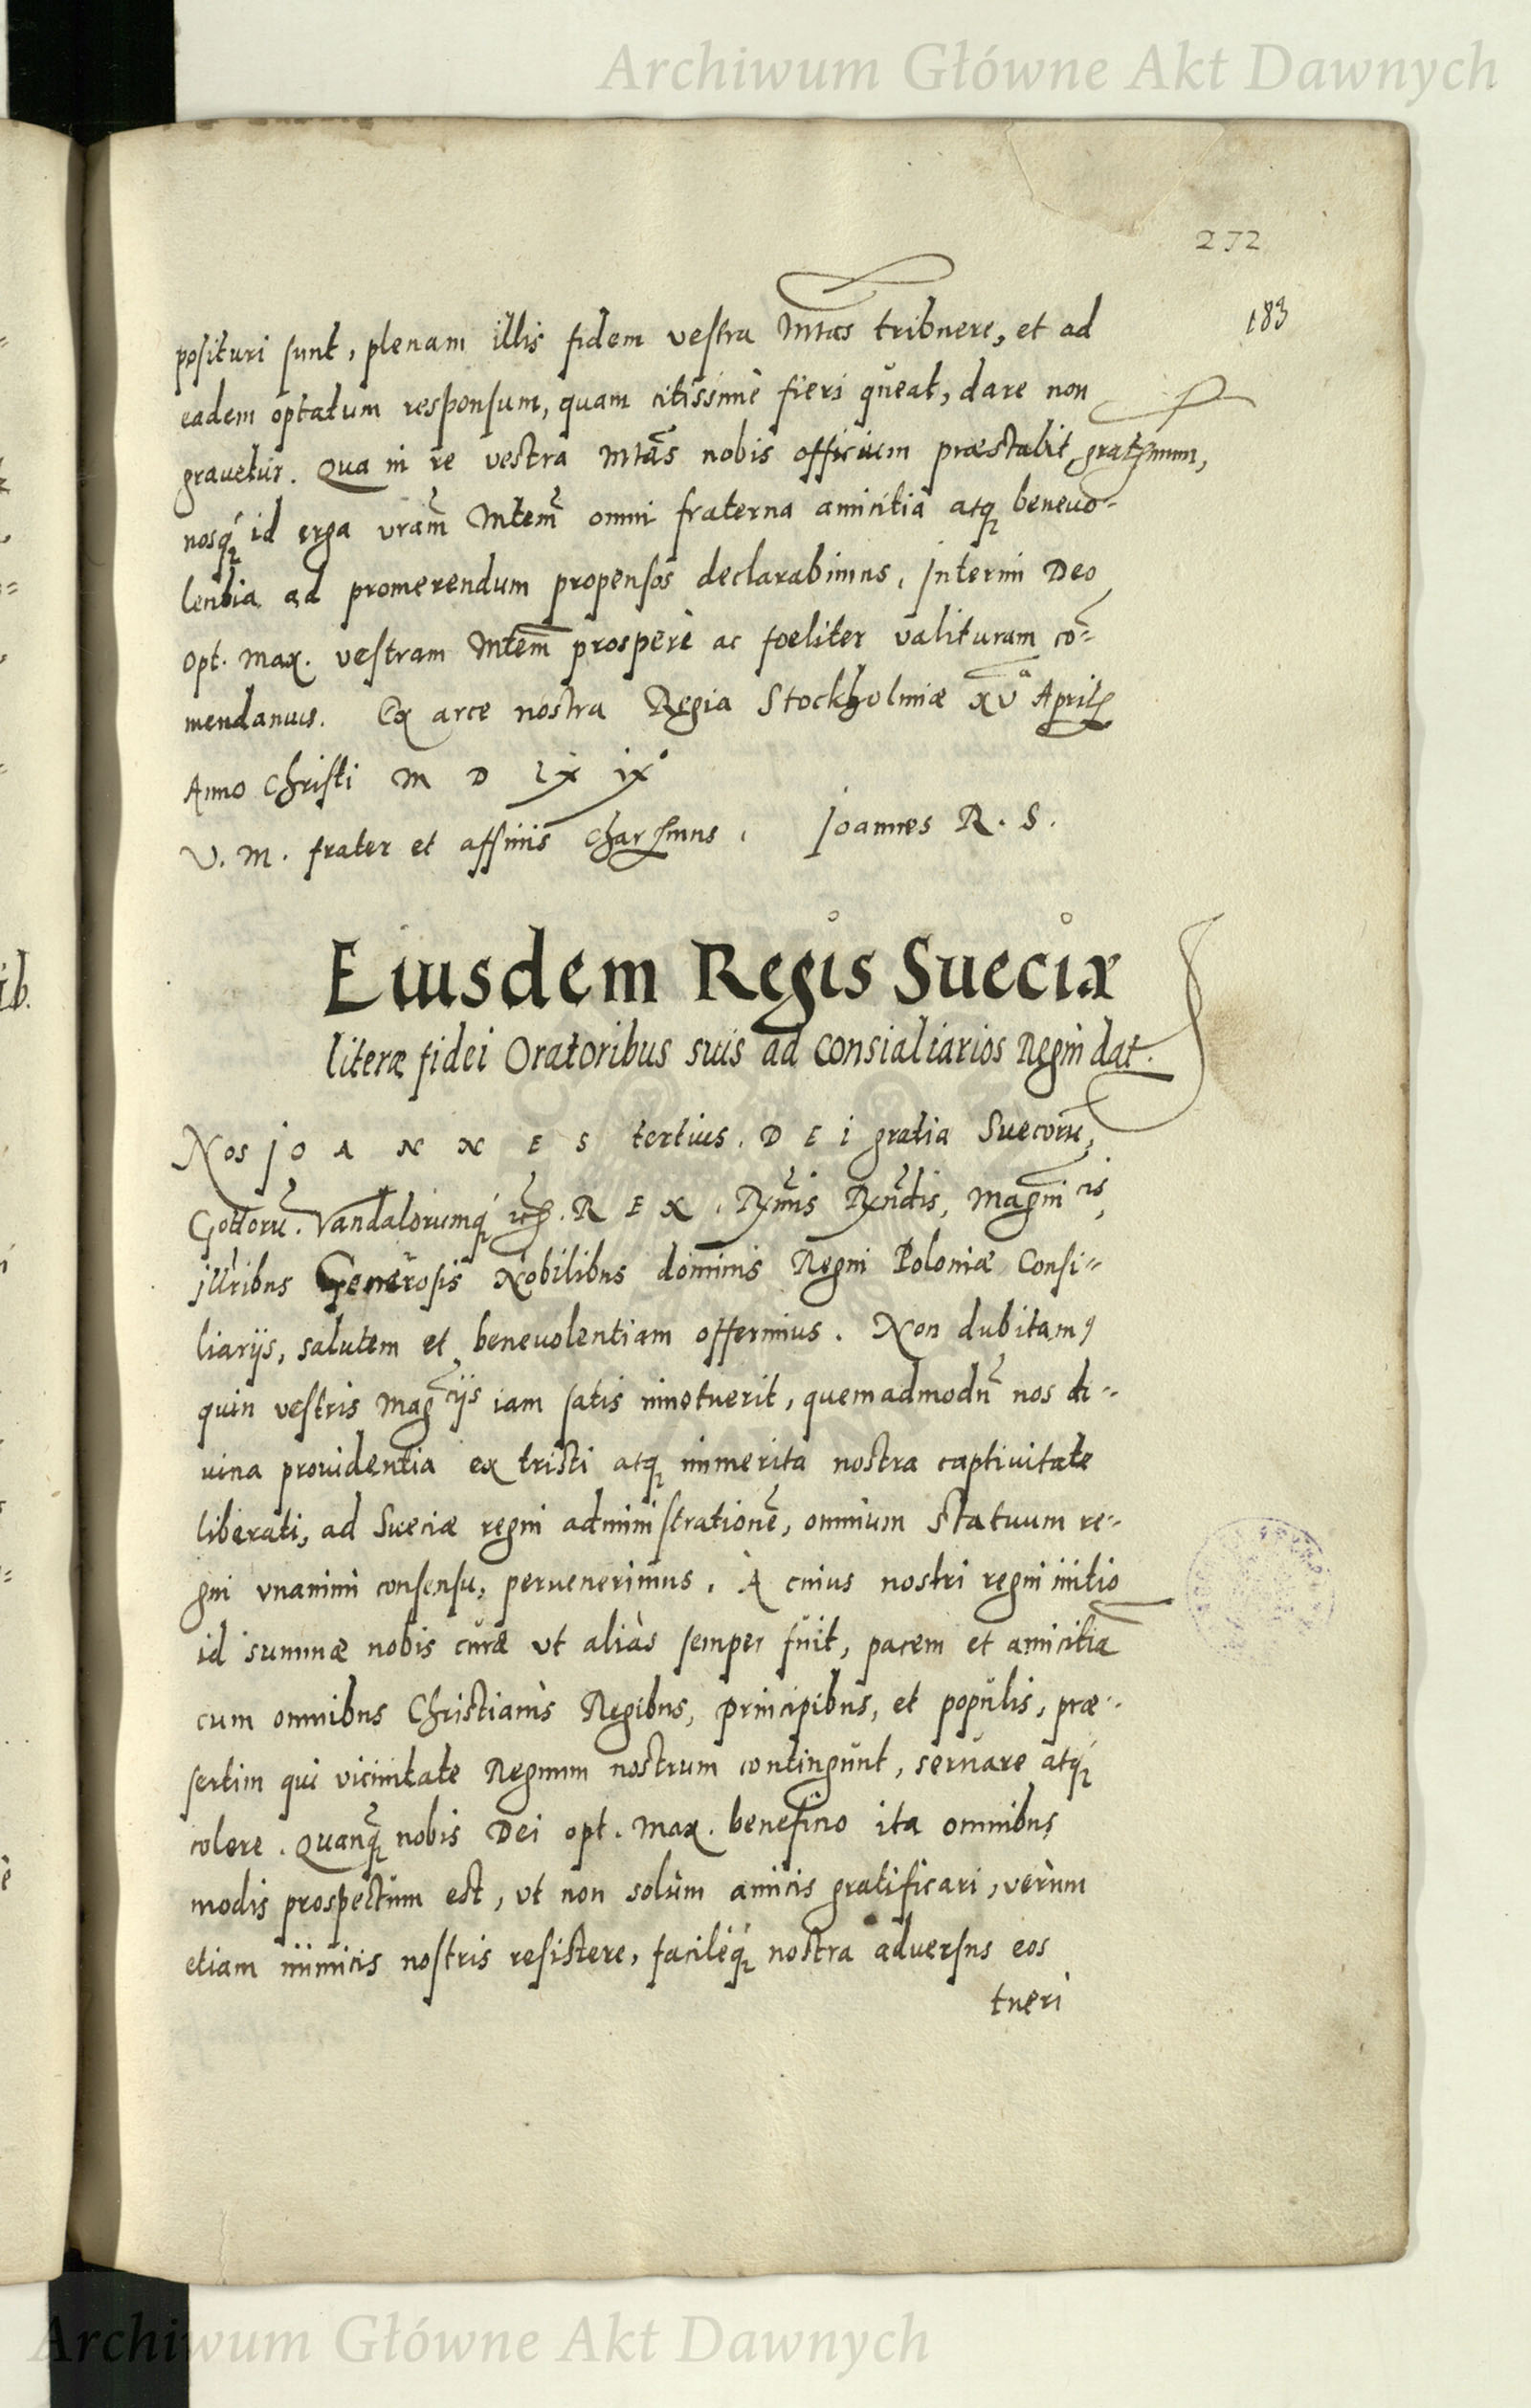 Archiwum Główne Akt Dawnych
272
183
posituri sunt, plenam illis fidem vestra Mtas tribuere, et ad
eadem optatum responsum, quam citissimè fieri queat, dare non
grauetur. Qua in re vestra Mtas nobis officium præstabit gratssimum,
nosq́ꝫ id erga vram̃ Mtem̃ omni fraterna amicitia atqꝫ beneuo-
lentia ad promerendum propensos declarabimus, Interim Deo
Opt. Max. vestram Mtem̃ prosperè ac foeliter valituram cõ-
mendamus. Ex arce nostra Regia Stockholmiæ XVa Aprilꝭ
Anno Christi M D LX IX°
V. M. frater et affinis charssmus, Joannes R. S.
Eiusdem Regis Sueciæ
literæ fidei Oratoribus suis ad Consialiarios Regni dat.
Nos JOANNES tertius, DEI gratia Suecorũ,
Gottorũ. Vandalorumq́ꝫ REX, Rx̃mis Rx̃ndis, Magnicis,
jllribus Generosis Nobilibus dominis Regni Poloniæ Consi-
liarijs, salutem et beneuolentiam offerimus. Non dubitamꝰ
quin vestris Magcijs iam satis innotuerit, quemadmodũ nos di-
uina prouidentia ex tristi atqꝫ immerita nostra captiuitate
liberati, ad Sueciæ regni administrationẽ, omnium statuum re-
gni vnanimi consensu, peruenerimus. A cuius nostri regni initio
id summæ nobis curæ vt aliàs semper fuit, pacem et amicitiã
cum omnibus Christianis Regibus, principibus, et populis, præ-
sertim qui vicinitate Regnum nostrum contingunt, seruare atq́ꝫ
colere. Quanq̃ꝫ nobis Dei opt. Max. beneficio ita omnibus
modis prospectum est, vt non solùm amicis gratificari, verùm
etiam inimicis nostris resistere, facileq́ꝫ nostra aduersus eos
tueri
Archiwum Główne Akt Dawnych